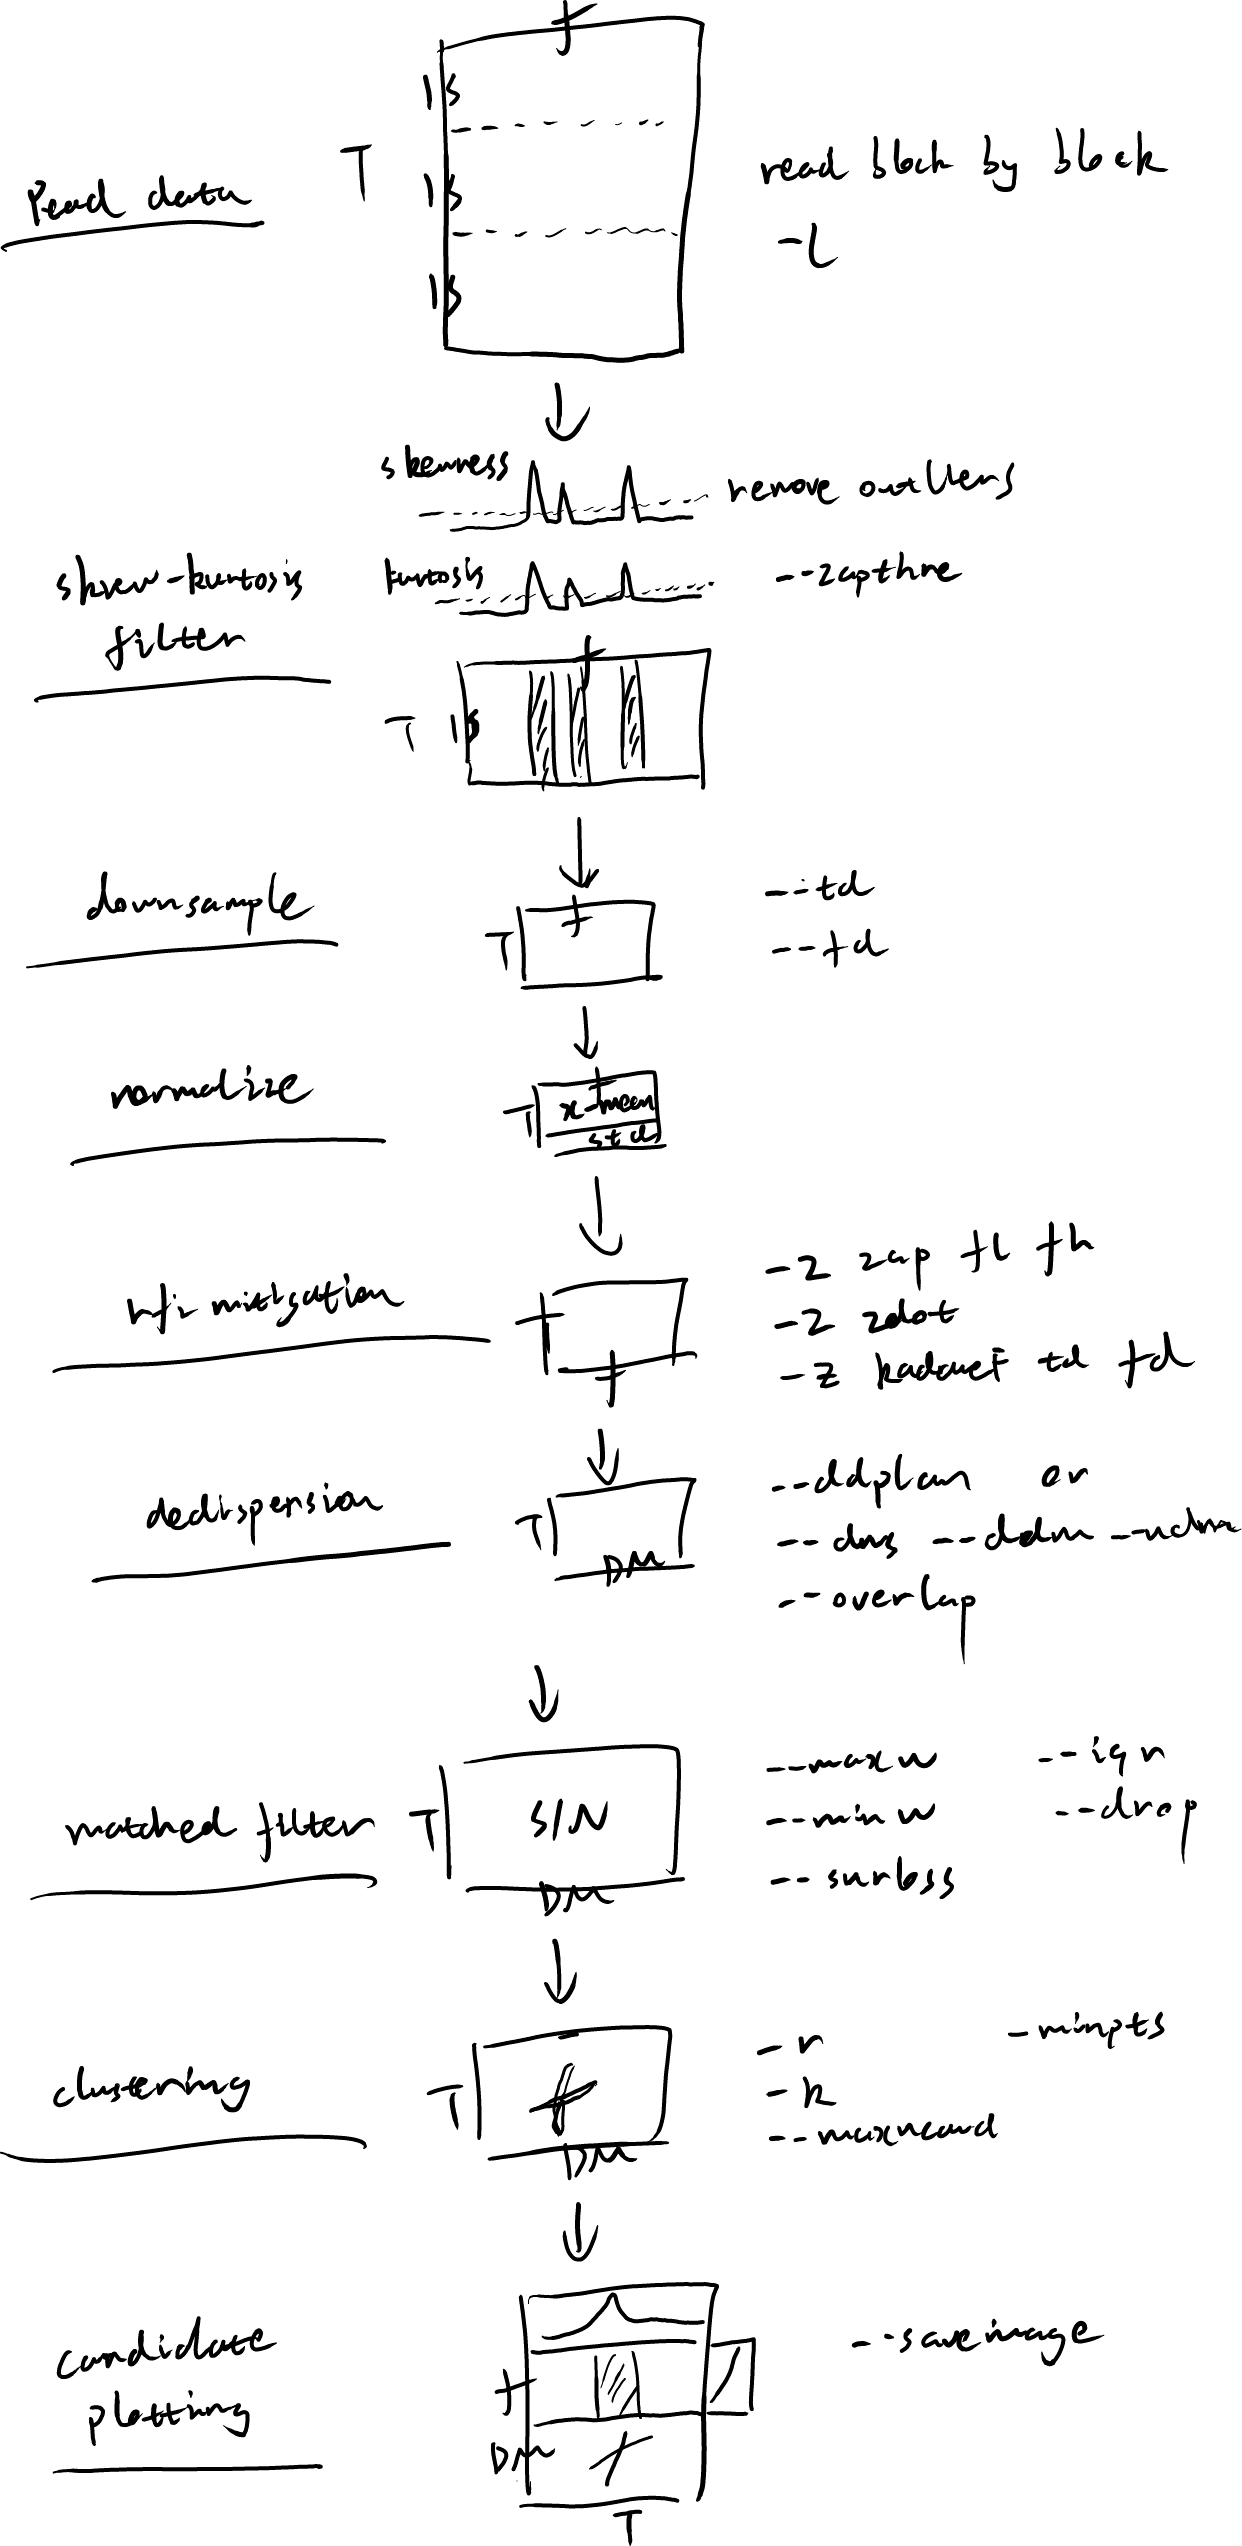 f
1s
T
1s
1s
Read data
read block by block
-l
skewness
remove outliers
skrew-kurtosis
filter
kurtosis
--zapthre
f
T 1s
downsample
T f
--td
--fd
normalize
T f
x-mean
std
rfi mitigation
T
f
-z zap fl fh
-z zdot
-z kadaneF td fd
dedispersion
T
DM
--ddplan or
--dms --ddm --ndm
--overlap
matched filter
T
S/N
DM
--maxw --iqr
--minw --drop
--snrloss
clustering
T
DM
-r -minpts
-k
--maxncand
candidate
plotting
f
DM
T
--saveimage